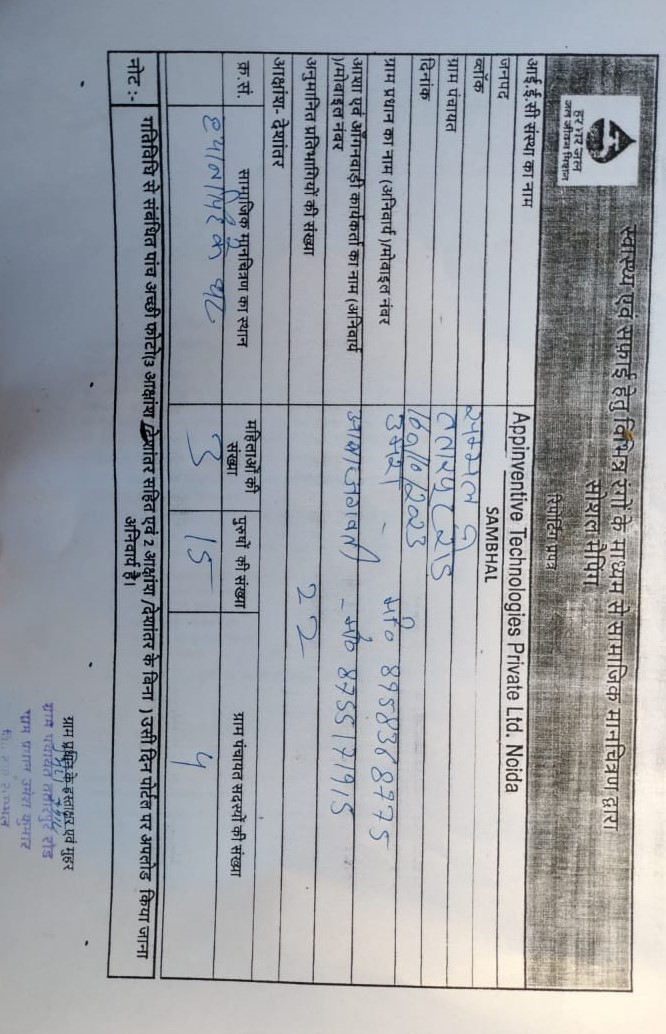 हर घर जल
जल जीवन मिशन
स्वास्थ्य एवं सफाई हेतु विभिन्न रंगों के माध्यम से सामाजिक मानचित्रण द्वारा
सोशल मैपिंग
रिपोर्टिंग प्रपत्र
आई.ई.सी संस्था का नाम Appinventive Technologies Private Ltd. Noida
जनपद SAMBHAL
ब्लॉक सम्भल
ग्राम पंचायत
दिनांक 16/10/2023
ग्राम प्रधान का नाम (अनिवार्य )/मोबाइल नंबर उमेश - मो० 8958368775
आशा एवं आँगनवाड़ी कार्यकर्ता का नाम (अनिवार्य
)/मोबाइल नंबर - मो० 8755171915
अनुमानित प्रतिभागियों की संख्या 22
आक्षांश- देशांतर
क्र.सं. सामाजिक मानचित्रण का स्थान महिलाओं की संख्या पुरुषों की संख्या ग्राम पंचायत सदस्यों की संख्या
के घर 3 15 4
नोट :- गतिविधि से संबंधित पांच अच्छी फोटो(3 आक्षांश /देशांतर सहित एवं 2 आक्षांश /देशांतर के बिना ) उसी दिन पोर्टल पर अपलोड किया जाना
अनिवार्य है।
ग्राम प्रधान के हस्ताक्षर एवं मुहर
ग्राम पंचायत रोड
उमेश कुमार